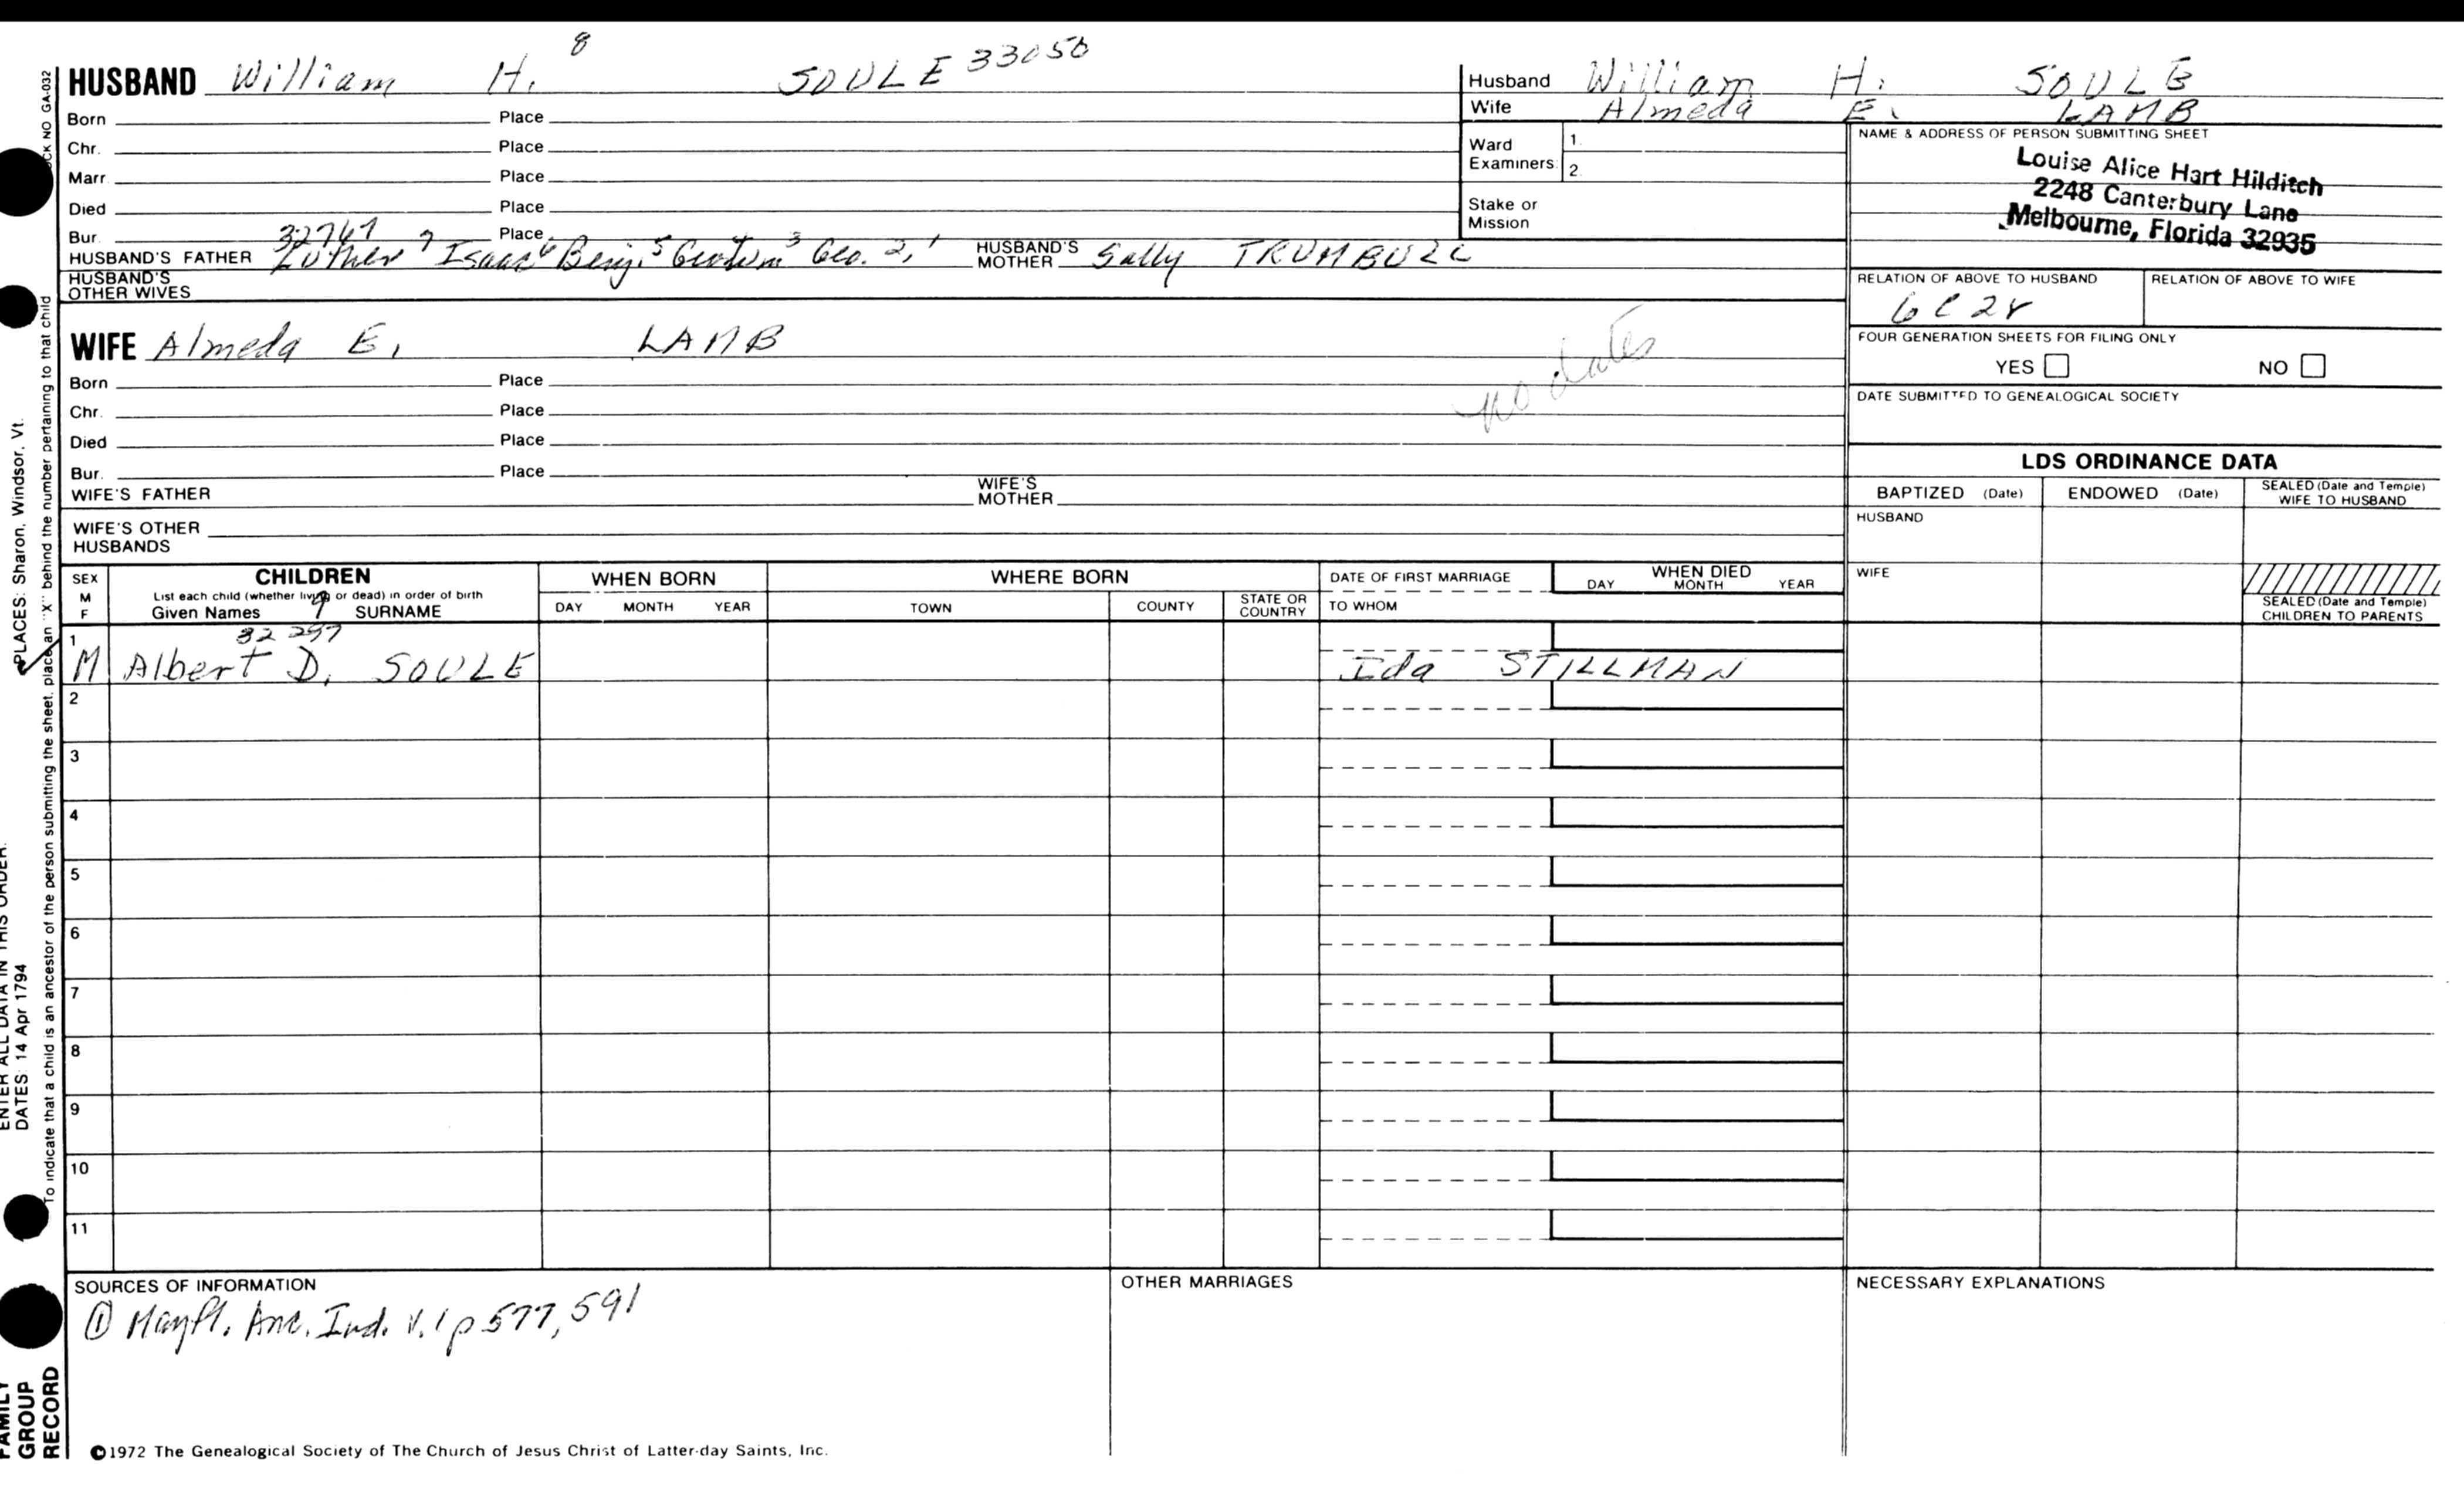 HUSBAND William H. 8 SOULE 33050
Born Place
Chr. Place
Marr. Place
Died Place
Bur. Place
32767
HUSBAND'S FATHER Luther 7 Isaac 6 Benj. 5 Geo. 2, 1 HUSBAND'S MOTHER Sally TRUMBULL
HUSBAND'S OTHER WIVES
Husband William H. SOULE
Wife Almeda E. LAMB
Ward Examiners 1. 2.
Stake or Mission
NAME & ADDRESS OF PERSON SUBMITTING SHEET
Louise Alice Hart Hilditch
2248 Canterbury Lane
Melbourne, Florida 32935
RELATION OF ABOVE TO HUSBAND RELATION OF ABOVE TO WIFE
6C2r
FOUR GENERATION SHEETS FOR FILING ONLY
YES NO
DATE SUBMITTED TO GENEALOGICAL SOCIETY
WIFE Almeda E. LAMB
no dates
Born Place
Chr. Place
Died Place
Bur. Place
WIFE'S FATHER WIFE'S MOTHER
WIFE'S OTHER HUSBANDS
LDS ORDINANCE DATA
BAPTIZED (Date) ENDOWED (Date) SEALED (Date and Temple) WIFE TO HUSBAND
HUSBAND
WIFE
SEALED (Date and Temple) CHILDREN TO PARENTS
SEX M F CHILDREN WHEN BORN WHERE BORN DATE OF FIRST MARRIAGE WHEN DIED
List each child (whether living or dead) in order of birth
Given Names 9 SURNAME DAY MONTH YEAR TOWN COUNTY STATE OR COUNTRY TO WHOM DAY MONTH YEAR
1 32297
M Albert D. SOULE Ida STILLMAN
2
3
4
5
6
7
8
9
10
11
SOURCES OF INFORMATION OTHER MARRIAGES NECESSARY EXPLANATIONS
① Mayfl. Anc. Ind. v. 1 p 577, 591
©1972 The Genealogical Society of The Church of Jesus Christ of Latter-day Saints, Inc.
FAMILY GROUP RECORD
ENTER ALL DATA IN THIS ORDER:
DATES: 14 Apr 1794
PLACES: Sharon, Windsor, Vt.
To indicate that a child is an ancestor of the person submitting the sheet, place an "X" behind the number pertaining to that child
NO GA-032